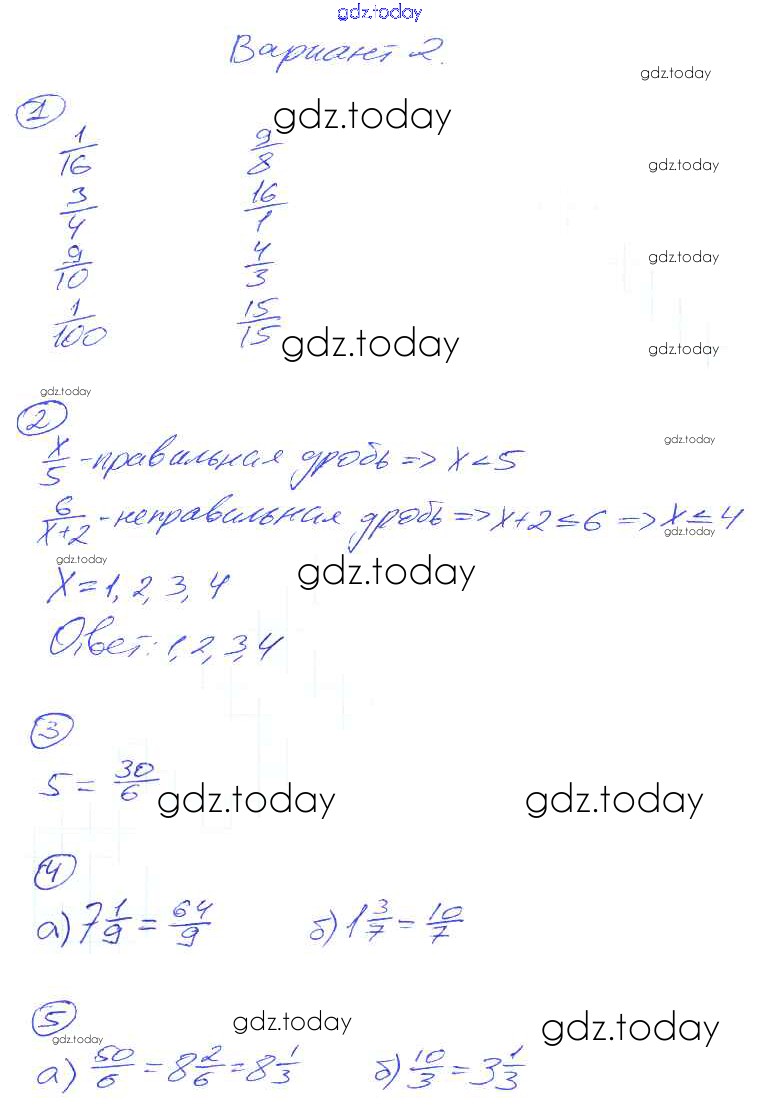 gdz.today
Вариант 2.
gdz.today
1 gdz.today
1/16 9/8
gdz.today
3/4 16/1
9/10 4/3
gdz.today
1/100 15/15
gdz.today gdz.today
gdz.today
2
gdz.today
x/5 - правильная дробь => x < 5
6/x+2 - неправильная дробь => x+2 ≤ 6 => x ≤ 4
gdz.today
gdz.today gdz.today
X = 1, 2, 3, 4
Ответ: 1, 2, 3, 4
3
5 = 30/6
gdz.today gdz.today
4
а) 7 1/9 = 64/9 б) 1 3/7 = 10/7
5
gdz.today gdz.today gdz.today
а) 50/6 = 8 2/6 = 8 1/3 б) 10/3 = 3 1/3